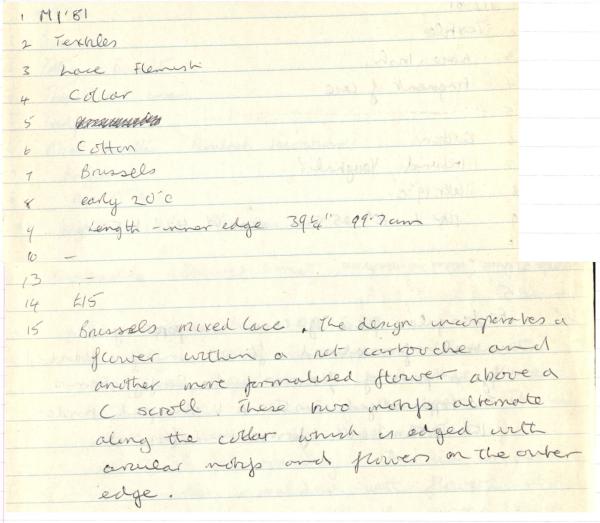 1 M1'81
2 Textiles
3 Lace Flemish
4 Collar
5
6 Cotton
7 Brussels
8 early 20°c
9 Length - inner edge 39¼" 99.7cm
10 -
13 -
14 £15
15 Brussels mixed lace. The design incorporates a
flower within a net cartouche and
another more formalised flower above a
C scroll These two motifs alternate
along the collar which is edged with
motifs and flowers on the outer
edge.